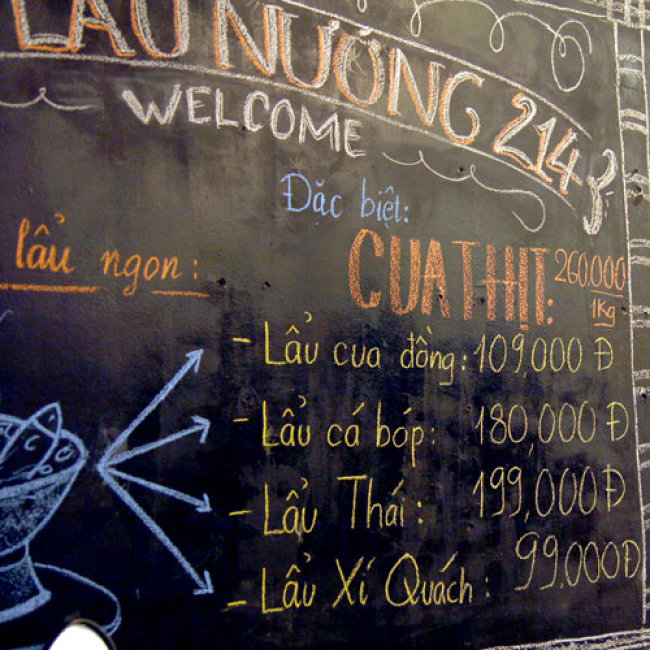 LẨU NƯỚNG 214
WELCOME
Đặc biệt:
CUA THỊT: 260.000
1Kg
lẩu ngon:
- Lẩu cua đồng: 109,000 Đ
- Lẩu cá bóp: 180,000 Đ
- Lẩu Thái: 199,000 Đ
- Lẩu Xí Quách: 99,000 Đ